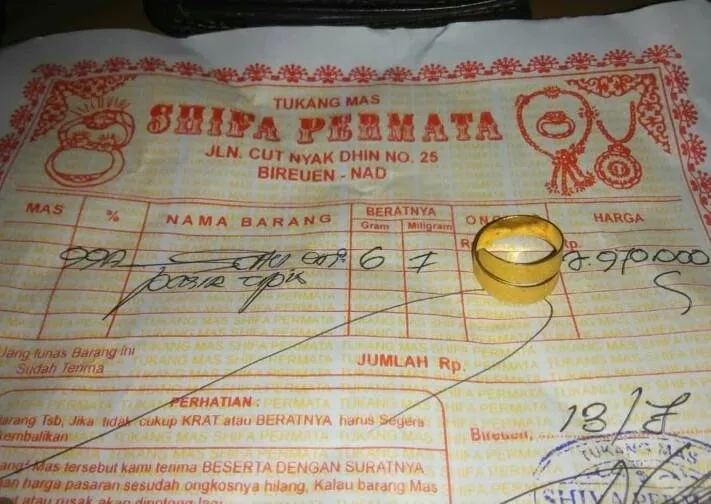 TUKANG MAS
SHIFA PERMATA
JLN. CUT NYAK DHIN NO. 25
BIREUEN - NAD
MAS % NAMA BARANG BERATNYA HARGA
Gram Miligram Rp.
997 6 7 .970.000
pasir
Uang tunas Barang ini
Sudah Terima
JUMLAH Rp.
PERHATIAN :
Barang Tsb, Jika tidak cukup KRAT atau BERATNYA harus Segera
kembalikan
Mas tersebut kami terima BESERTA DENGAN SURATNYA
harga pasaran sesudah ongkosnya hilang, Kalau barang Mas
atau rusak akan dipotong lagi
Bireuen, 13/7
TUKANG MAS